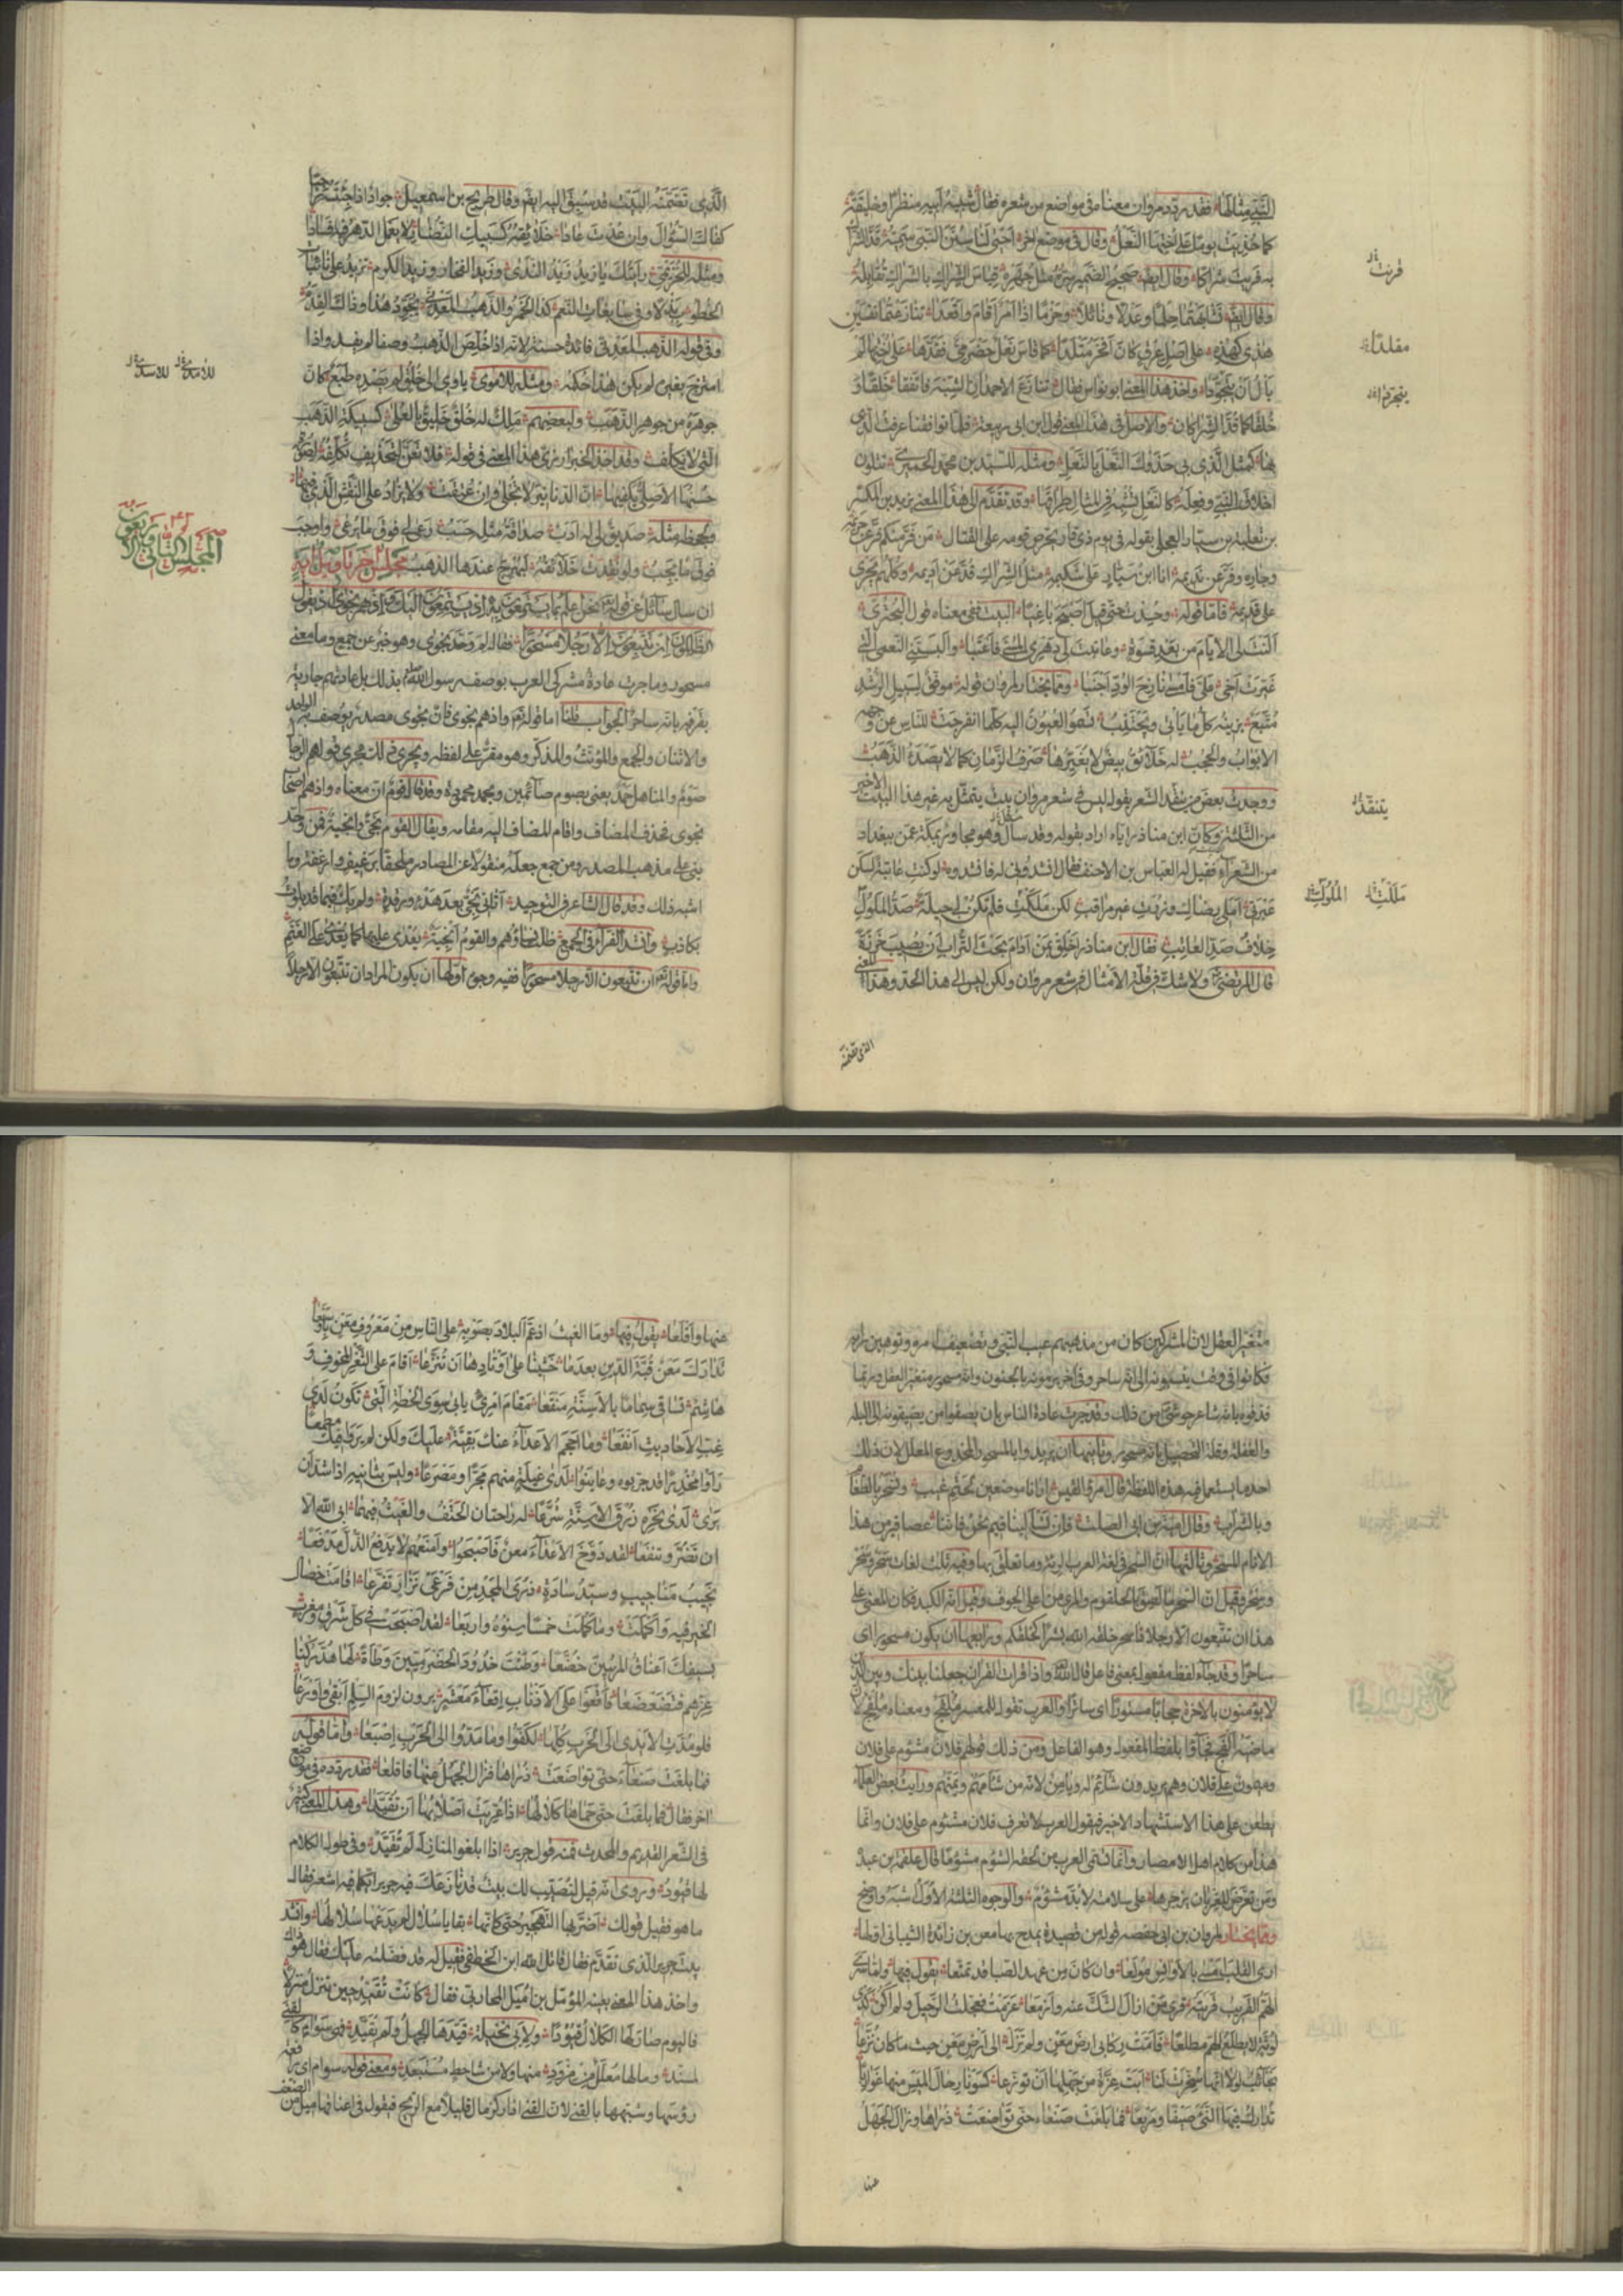 فقد ردد مروان معناه في مواضع من شعره فقال شبيه أبيه منظرًا وخليقة
كما حذيت يومًا على أختها النعل وقال في موضع آخر
وقال أيضا صحيح الضمير سره مثل جهره قياس الشراك بالشراك تقابله
وقال أيضا تشابهتما حلمًا وعدلًا ونائلًا وحزمًا إذا أمر أقام وأقعدا تنازعتما نفسين
هذي كهذه على أصل عرق كان أفخر متلدا كما قاس نعل حضرمي فقدها على أختها لم
يأل أن يتجودا وأخذ هذا المعنى أبو نواس فقال تنازع الأحمدان الشبه فاتفقا خلقًا و
خلقًا كما قد الشراكان والأصل في هذا المعنى قول ابن أبي ربيعة فلما تواقفنا عرفت الذي
بها كمثل الذي بي حذوك النعل بالنعل ومثله للسيد بن محمد الحميري يتلون
أخلاق النبي وفعله كالنعل تشبه في المثال طراقها وقد تقدم إلى هذا المعنى يزيد بن المكسر
بن ثعلبة بن سيار العجلي بقوله في يوم ذي قار يحرض قومه على القتال من فر منكم فر عن حريمه
وجاره وفر عن نديمه أنا ابن سيار على شكيمه مثل الشراك قد من أديمه وكلهم يجري
على قديمه فأما قوله البيت ففي معناه قول البحتري
ألنت لي الأيام من بعد قسوة وعاتبت لي دهري المسيء فأعتبا وألبستني النعمى التي
غيرت أخي علي فأمسى نازح الود أجنبا ومما يختار لمروان قوله موفق لسبيل الرشد
متبع يزينه كل ما يأتي ويجتنب تسمو العيون إليه كلما انفرجت للناس عن وجهه
الأبواب والحجب له خلائق بيض لا يغيرها صرف الزمان كما لا يصدأ الذهب
ووجدت بعض من ينقد الشعر يقول ليس في شعر مروان بيت يتمثل به غير هذا البيت الأخير
من الثلثة وكان ابن مناذر إياه أراد بقوله وقد سأل وهو مجاور بمكة عمن ببغداد
من الشعراء فقيل له العباس بن الأحنف فقال أنشدوني له فأنشدوه لو كنت عاتبة لسكن
عبرتي أملي رضاك وزرت غير مراقب لكن مللت فلم تكن لي حيلة صد الملول
خلاف صد العاتب فقال ابن مناذر أخلق بمن أدام بحث التراب أن يصيب خرزة
قال المرتضى ولا شك في قلة الأمثال في شعر مروان ولكن ليس إلى هذا الحد وهذا المعنى
الذي تضمنه
قربت
مقلدا
يتجردا
ينتقد
مللت الملول
الذي تضمنه البيت قد سبق إليه أيضا وقال طريح بن اسمعيل جواد إذا جئته راجيا
كفاك السؤال وإن عدت عادا خلائقه كسبيك النضار لا يعمل الدهر فيه فسادا
ومثله للخريمي رأيتك يا زيد زيد الندى وزيد الفخار وزيد الكرم تزيد على نائبات
الخطوب بذلا وفي سابغات النعم كذا الخمر والذهب المعدني يجود هذا وذاك القدم
وفي قوله الذهب المعدني فائدة حسنة لأنه إذا خلص الذهب وصفا لم يفسد وإذا
امتزج بغيره لم يكن هذا حكمه ومثله للأموي يأوي إلى خلق لم يصده طبع كأن
جوهره من جوهر الذهب ولبعضهم ملك له خلق خليق بالعلى كسبيكة الذهب
التي لا تكلف وقد أخذ الخبزارزي هذا المعنى في قوله فلا تعن لتحذيف تكلفه لصورة
حسنها الأصلي يكفيها إن الدنانير لا تجلى وإن عتقت ولا يزاد على النقش الذي فيها
ولجحظة مثله صديق لي له أدب صداقة مثله حسب رعى لي فوق ما يرعى وأوجب
فوق ما يجب ولو نقدت خلائقه لبهرج عندها الذهب مجلس آخر تأويل آية
إن سأل سائل عن قوله تعالى نحن أعلم بما يستمعون به إذ يستمعون إليك وإذ هم نجوى إذ يقول
الظالمون إن تتبعون إلا رجلا مسحورا فقال لم وحد نجوى وهو خبر عن جمع وما معنى
مسحور وما جرت عادة مشركي العرب بوصف رسول الله بذلك بل عادتهم جارية
بقرفه بأنه ساحر الجواب قلنا أما قوله تعالى وإذ هم نجوى فإن نجوى مصدر يوصف به الواحد
والاثنان والجمع والمؤنث والمذكر وهو مقر على لفظه ويجري ذلك مجرى قولهم الرجال
صوم والمناهل حمد يعني بصوم صائمين وبحمد محمودة وقد قال قوم إن معناه وإذ هم أصحاب
نجوى فحذف المضاف وأقام المضاف إليه مقامه ويقال القوم نجي وأنجية فمن وحد
بنى على مذهب المصدر ومن جمع جعله منقولا عن المصادر ملحقا برغيف وأرغفة وما
أشبه ذلك وقد قال الشاعر في التوحيد أتاني نجيي بعد هدء ورقدة ولم يك فيما قد بلوت
بكاذب وأنشد الفراء في الجمع ظلت نساؤهم والقوم أنجية يعدى عليها كما يعدى على الغنم
وأما قوله تعالى إن تتبعون إلا رجلا مسحورا ففيه وجوه أولها أن يكون المراد إن تتبعون إلا رجلا
المجلس الثاني والأربعون
متغير العقل لأن المشركين كان من مذهبهم عيب النبي وتضعيف أمره وتوهين رأيه
فكانوا في وقت ينسبونه إلى أنه ساحر وفي آخر يرمونه بالجنون وأنه مسحور متغير العقل وربما
قذفوه بأنه شاعر حوشي من ذلك وقد جرت عادة الناس بأن يصفوا من يضيفونه إلى البله
والغفلة وقلة التحصيل بأنه مسحور وثانيها أن يريدوا بالمسحور المخدوع المعلل لأن ذلك
أحد ما يستعمل فيه هذه اللفظة قال امرؤ القيس أرانا موضعين لحتم غيب ونسحر بالطعام
وبالشراب وقال أمية بن أبي الصلت فإن تسألينا فيم نحن فإننا عصافير من هذا
الأنام المسحر وثالثها أن السحر في لغة العرب الرئة وما تعلق بها وفيه ثلث لغات سحر وسحر
وسحر وقيل إن السحر ما لصق بالحلقوم والمري من أعلى الجوف وقيل إنه الكبد فكان المعنى على
هذا إن تتبعون إلا رجلا ذا سحر خلقه الله بشرا كخلقكم ورابعها أن يكون مسحورا أي
ساحرا وقد جاء لفظ مفعول بمعنى فاعل قال الله تعالى وإذا قرأت القرآن جعلنا بينك وبين الذين
لا يؤمنون بالآخرة حجابا مستورا أي ساترا والعرب تقول للمعسر ملفج ومعناه ملفج لأن
ماضيه ألفج فجاؤا بلفظ المفعول وهو الفاعل ومن ذلك قولهم فلان مشئوم على فلان
وميمون على فلان وهم يريدون شائم له ويامن لأنه من شأمهم ويمنهم ورأيت بعض العلماء
يطعن على هذا الاستشهاد الأخير فيقول العرب لا تعرف فلان مشئوم على فلان وإنما
هذا من كلام أهل الأمصار وإنما تسمي العرب من لحقه الشؤم مشؤما قال علقمة بن عبدة
ومن تعرض للغربان يزجرها على سلامته لا بد مشؤم والوجوه الثلثة الأول أشبه وأوضح
ومما يختار لمروان بن أبي حفصة قوله من قصيدة يمدح بها معن بن زائدة الشيباني أولها
أرى القلب أمسى بالأوانس مولعا وإن كان من عهد الصبا قد تمتعا يقول فيها ولما سرى
الهم الغريب قريته قرى من أزال الشك عنه وأزمعا عزمت فعجلت الرحيل ولم أكن كذي
لوثة لا يطلع الهم مطلعا فأمت ركابي أرض معن ولم تزل إلى أرض معن حيث ما كان نزعا
نجائب لولا أنها سخرت لنا أبت عزة من جهلها أن توزعا كسونا رحال الميس منها غواربا
تدارك فيها الني صيفا ومربعا فما بلغت صنعاء حتى تواضعت ذراها وزال الجهل
عنها
عنها وأقلعا يقول فيها وما الغيث إذ عم البلاد بصوبه على الناس من معروف معن بأوسعا
تدارك معن قبة الدين بعد ما خشينا على أوتادها أن تنزعا أقام على الثغر المخوف و
هاشم تساقى سماما بالأسنة منقعا مقام امرئ يأبى سوى الخطة التي تكون لدى
غب الأحاديث أنفعا وما أحجم الأعداء عنك بقية عليك ولكن لم يروا فيك مطمعا
رأوا مخدرا قد جربوه وعاينوا لدى غيله منهم مجرا ومصرعا وليس بثانيه إذا شد أن
يرى لدى نحره زرق الأسنة شرعا له راحتان الحتف والغيث فيهما أبى الله إلا
أن تضر وتنفعا لقد دوخ الأعداء معن فأصبحوا وأمنعهم لا يدفع الذل مدفعا
نجيب مناجيب وسيد سادة ذرى المجد من فرعي نزار تفرعا أقامت خصال
الخير فيه وأكملت وما كملت خمسا سنوه وأربعا لقد أصبحت في كل شرق ومغرب
بسيفك أعناق المريبين خضعا وطئت خدود الحضرميين وطأة لها هد ركنا
عزهم فتضعضعا فأقعوا على الأذناب إقعاء معشر يرون لزوم السلم أبقى وأودعا
فلو مدت الأيدي إلى الحرب كلها لكفوا وما مدوا إلى الحرب إصبعا وأما قوله
فما بلغت صنعاء حتى تواضعت ذراها فزال الجهل عنها فأقلعا فقد ردده في موضع
آخر فقال فما بلغت حتى حماها كلالها إذا عريت أصلابها أن تقيدا وهذا المعنى كثير
في الشعر القديم والمحدث فمنه قول جرير إذا بلغوا المنازل لم تقيد وفي طول الكلال
لها قيود وروي أنه قيل لنصيب لك بيت قد نازعك فيه جرير أيكما فيه أشعر فقال
ما هو فقيل قولك أضر بها التهجير حتى كأنها بقايا سلال لم يدعها سلالها وأنشد
بيت جرير الذي تقدم فقال قاتل الله ابن الخطفى فقيل له قد فضلته عليك فقال هو ذاك
وأخذ هذا المعنى بعينه المؤمل بن أميل المحاربي فقال كانت تقيد حين تنزل منزلا
فاليوم صار لها الكلال قيودا ولأبي نخيلة قيدها الجهد ولم تقيد فهي سوام كالقنى
المسند وما لها معلل من مزود منها ولا من شاحط مستبعد ومعنى قوله سوام أي رافعة
رؤسها وشبهها بالقنى لأن القنى إذا ركز مال قليلا مع الريح فيقول في أعناقها ميل من الضعف